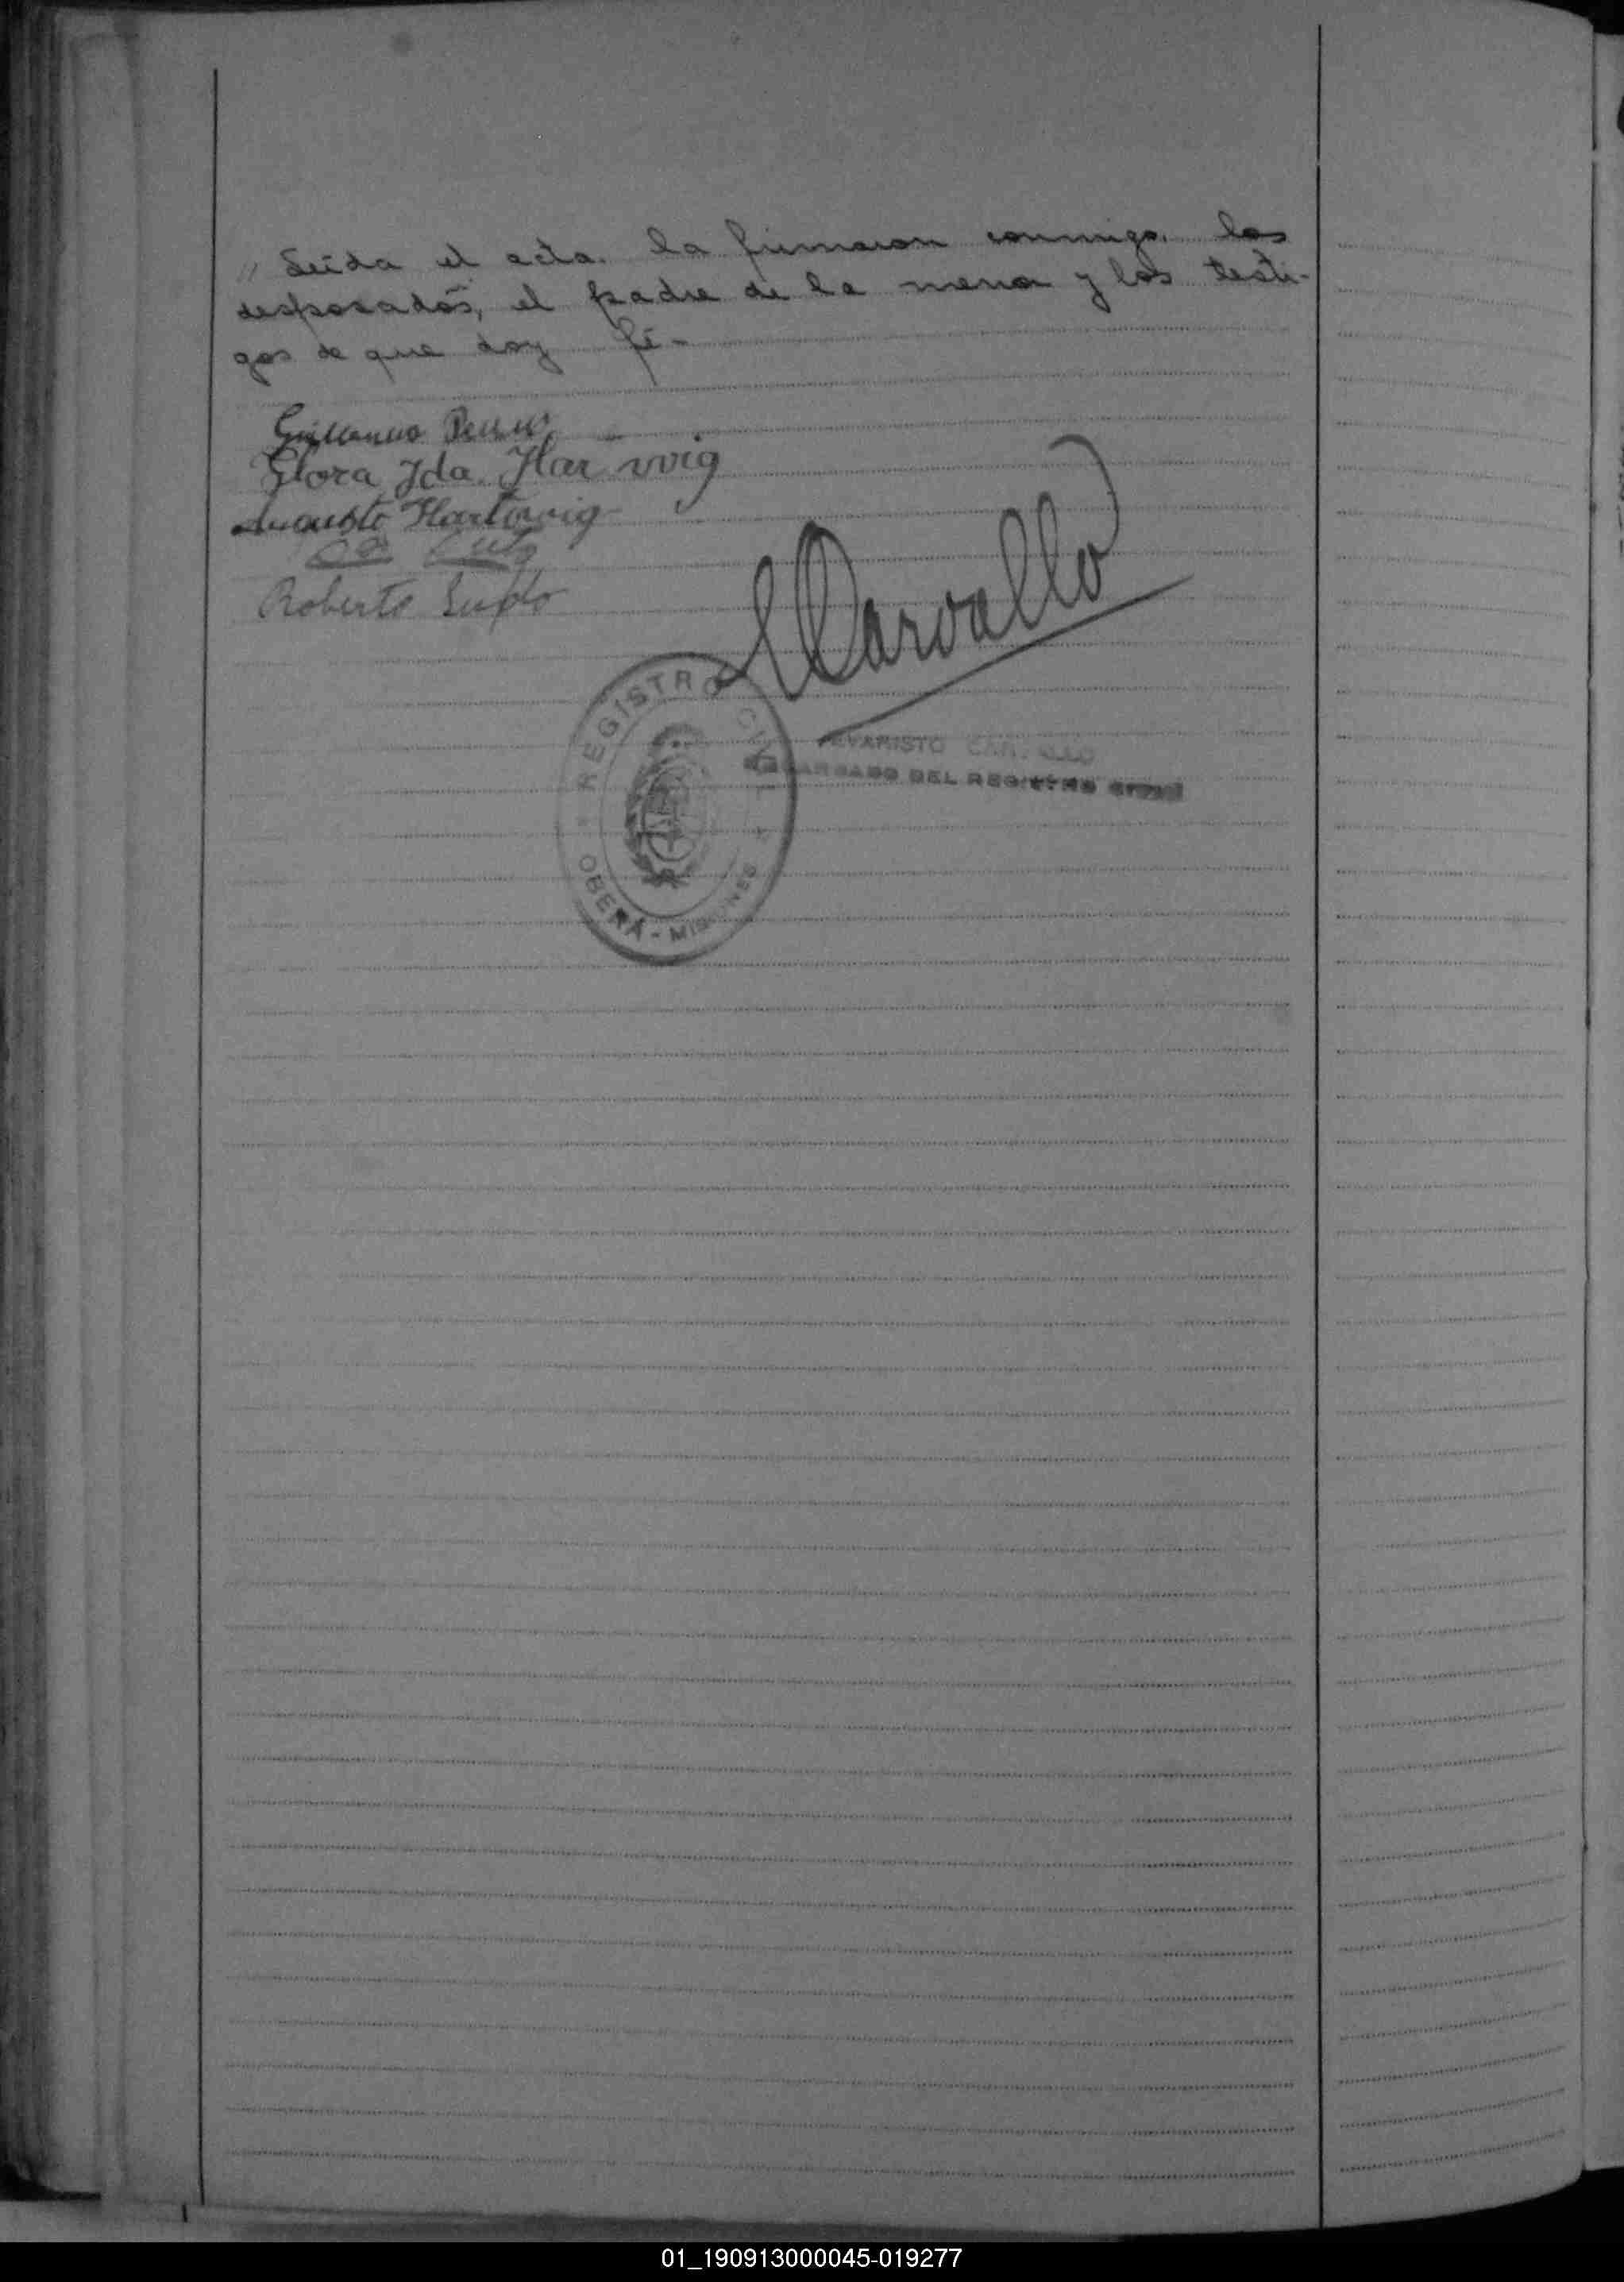 // Leída el acta. la firmaron conmigo. los
desposados, el padre de la menor y los testi-
gos de que doy fé-
Guillermo
Flora Jda. Hartwig
Augusto Hartwig
Roberto
ECarvallo
REGISTRO CIVIL
EVARISTO CARVALLO
ENCARGADO DEL REGISTRO CIVIL
OBERÁ - MISIONES
01_190913000045-019277